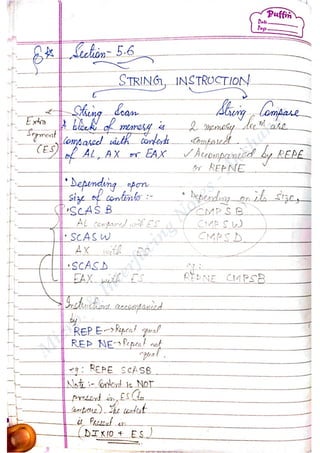 Puffin
Date
Page
Section - 5.6
STRING INSTRUCTION
String Scan
A block of memory is
compared with contents
of AL, AX or EAX
Extra
Segment
(ES)
• Depending upon
size of contents :-
• SCAS B
AL compared with ES
• SCAS W
AX with ES
• SCAS D
EAX with ES
Instructions accompanied
by
REPE → Repeat equal
REP NE → Repeat not
equal.
eg: REPE SCASB
Note :- Content is NOT
present in ES (to
compare). The content
is Present in
(DI X 10 + ES)
String Compare
2 memory are
compared
✓ Accompanied by REPE
or REPNE
• Depending on its size,
CMPS B
CMPS W
CMPS D
eg:
REPNE CMPSB